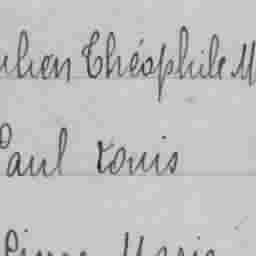 ulien Théophile M
Paul Louis
Pierre Marie